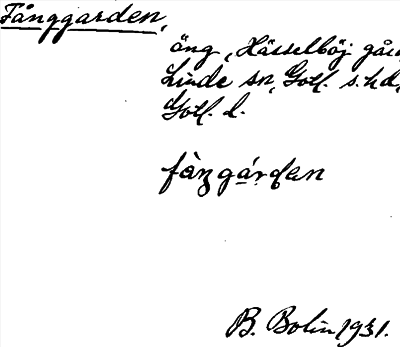 Fånggarden,
äng, Hässelböj gård,
Linde sn, Gotl. s. hd,
Gotl. l.
B. Bolin 1931.